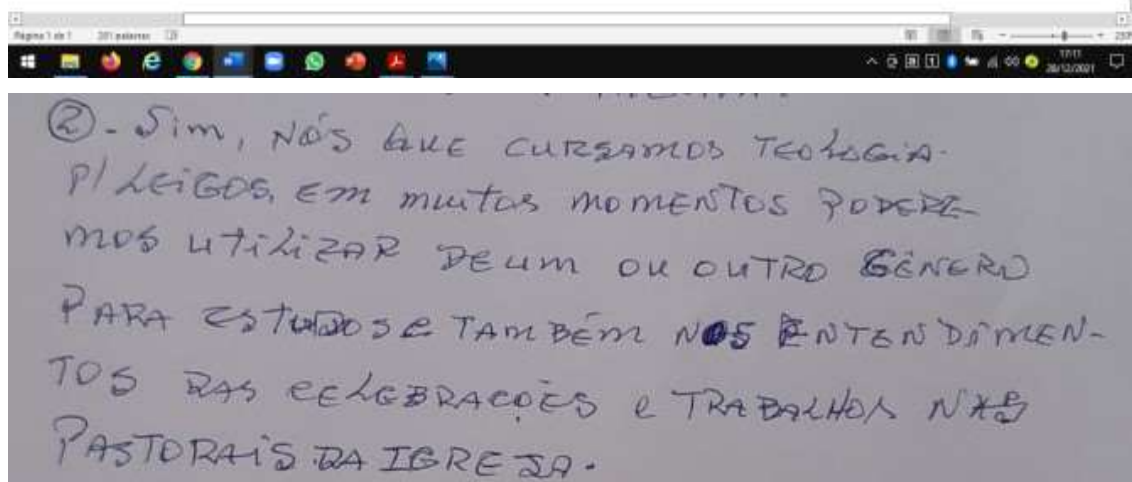 Página 1 de 1 201 palavras
17:11
28/12/2021
② - Sim, NÓS QUE CURSAMOS TEOLOGIA.
P/ LEIGOS, EM muitos momENTOS PODERE-
mos utiLizAR DE um ou OUTRO GÊNERO
PARA ESTUDOS e TAMBÉM NOS ENTENDIMEN-
TOS DAS CELEBRAÇÕES e TRABALHOS NAS
PASTORAIS DA IGREJA.